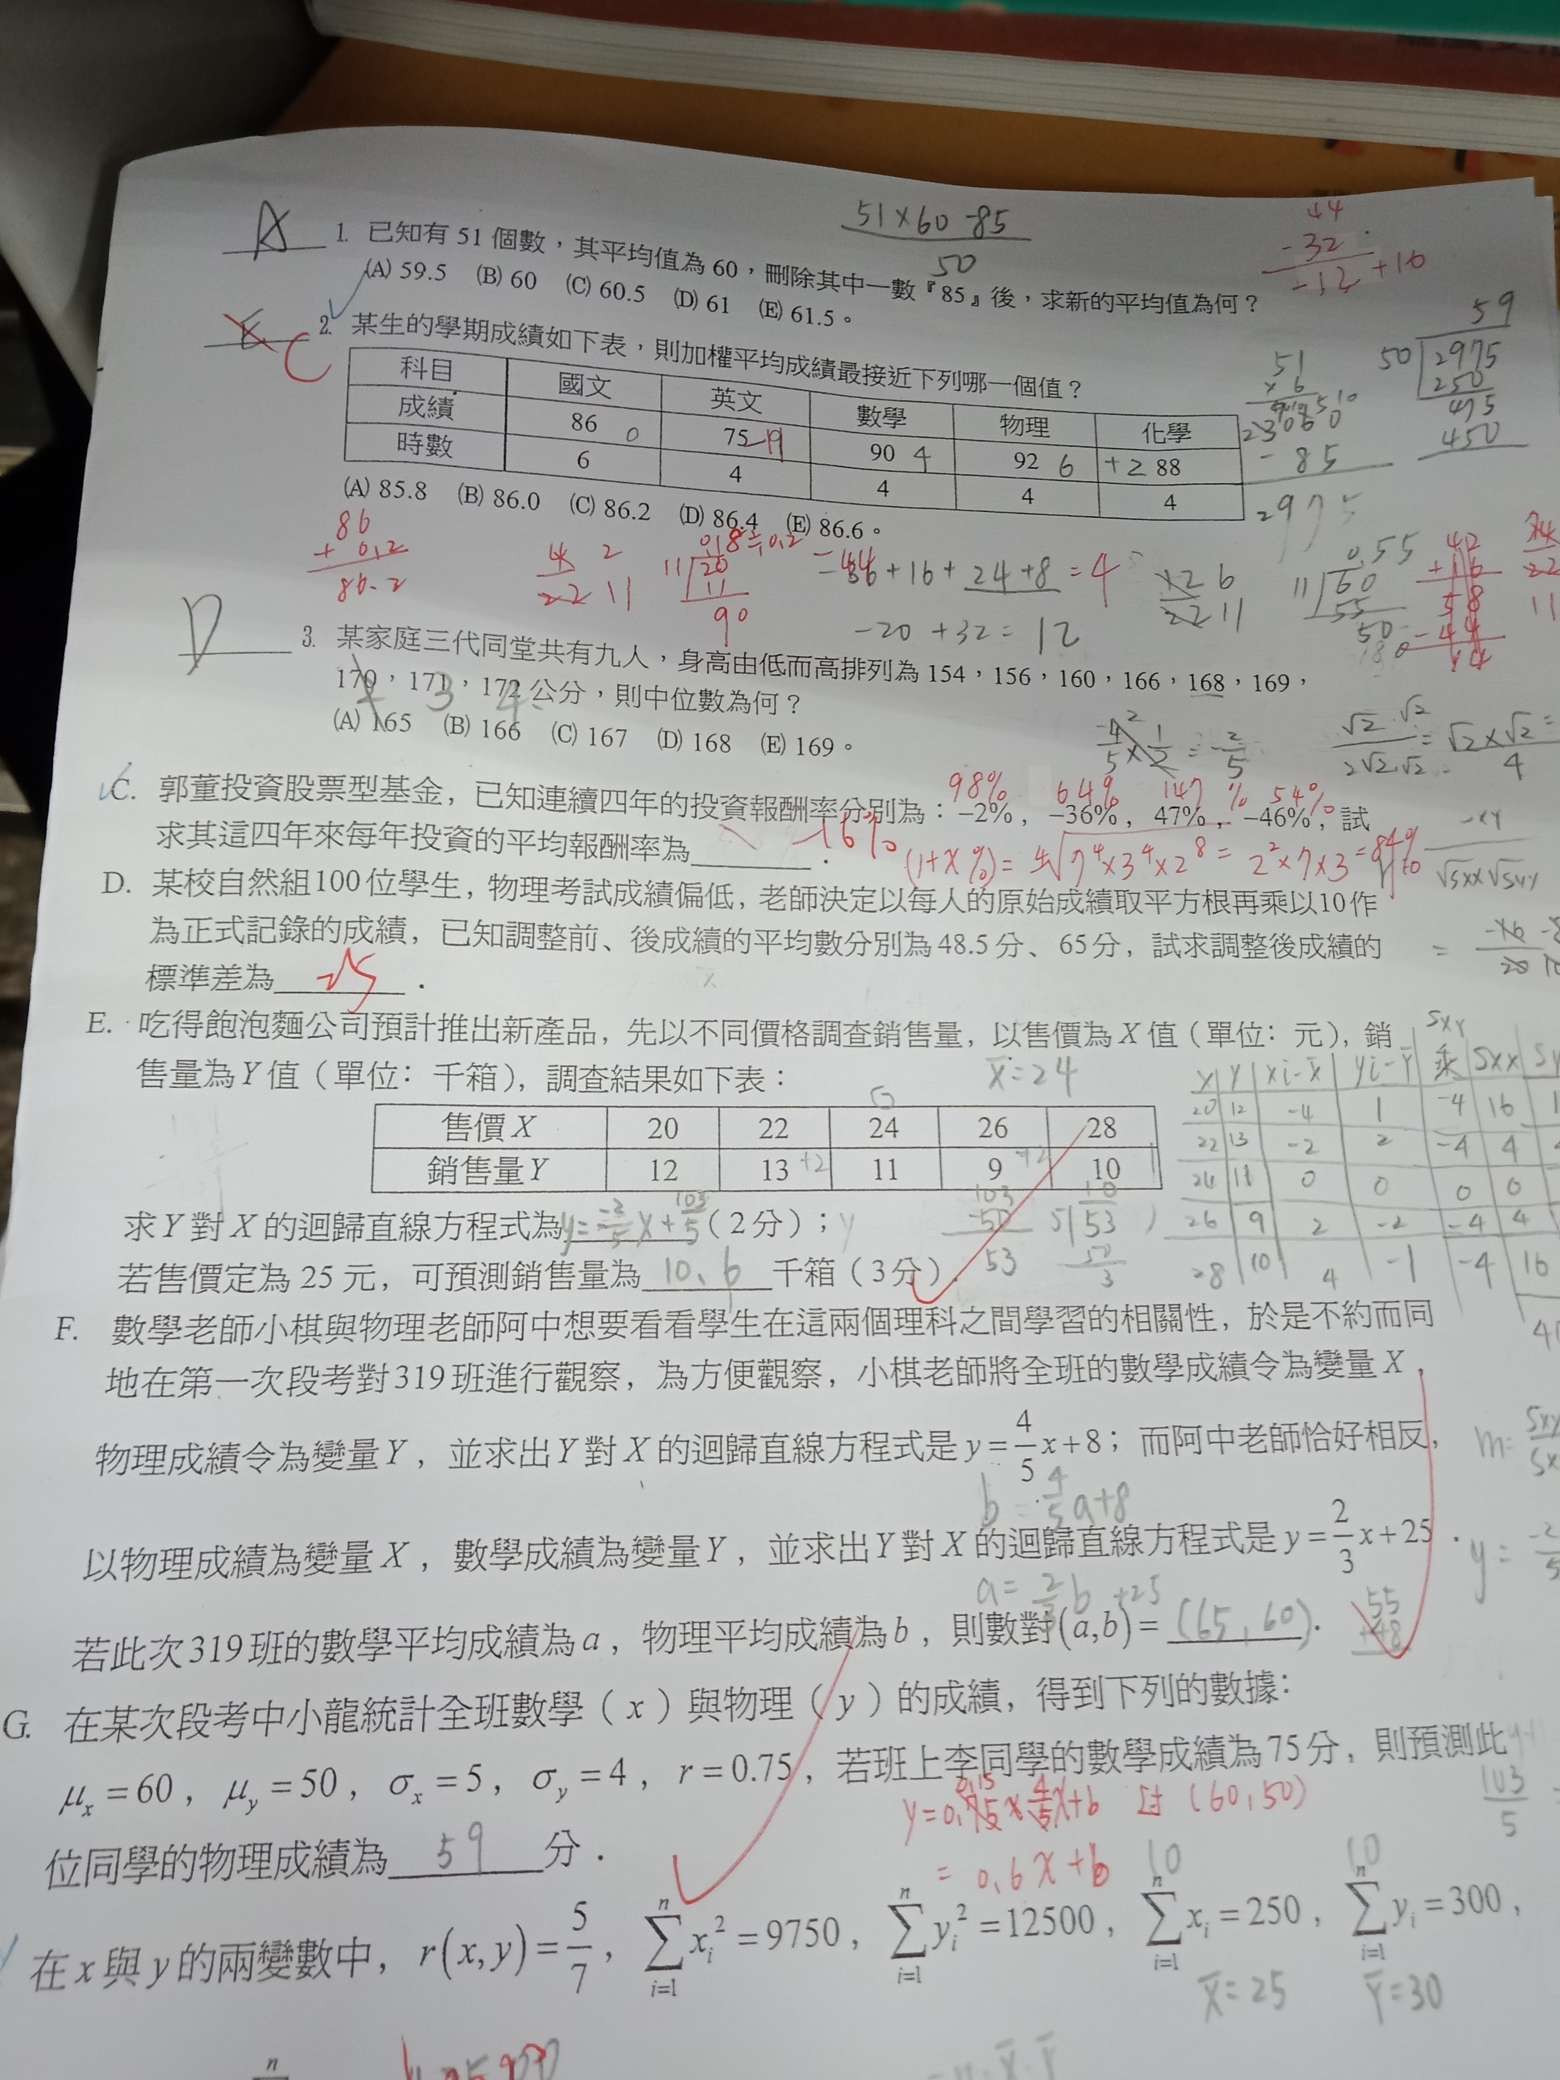 A 1. 已知有 51 個數，其平均值為 60，刪除其中一數『85』後，求新的平均值為何？
(A) 59.5 (B) 60 (C) 60.5 (D) 61 (E) 61.5。
51×60-85
50
44
-32
-12 +16
E C 2. 某生的學期成績如下表，則加權平均成績最接近下列哪一個值？
科目 國文 英文 數學 物理 化學
成績 86 0 75 90 4 92 6 +2 88
時數 6 4 4 4 4
(A) 85.8 (B) 86.0 (C) 86.2 (D) 86.4 (E) 86.6。
59
50 2975
250
475
450
51
×6
- 85
2975
86
+ 0.2
86.2
-20 +32 = 12
D 3. 某家庭三代同堂共有九人，身高由低而高排列為 154，156，160，166，168，169，
170，171，172 公分，則中位數為何？
(A) 165 (B) 166 (C) 167 (D) 168 (E) 169。
98% 64% 147% 54%
C. 郭董投資股票型基金，已知連續四年的投資報酬率分別為：−2%，−36%，47%，−46%，試
求其這四年來每年投資的平均報酬率為 -16% .
(1+x%)= ⁴√7⁴×3⁴×2⁸ = 2²×7×3=84%
D. 某校自然組100位學生，物理考試成績偏低，老師決定以每人的原始成績取平方根再乘以10作
為正式記錄的成績，已知調整前、後成績的平均數分別為48.5分、65分，試求調整後成績的
標準差為 25 .
E. 吃得飽泡麵公司預計推出新產品，先以不同價格調查銷售量，以售價為X值（單位：元），銷
售量為Y值（單位：千箱），調查結果如下表：
x̄=24
售價X 20 22 24 26 28
銷售量Y 12 13 11 9 10
x y xi-x̄ yi-ȳ 乘 Sxx
20 12 -4 1 -4 16
22 13 -2 2 -4 4
24 11 0 0 0 0
26 9 2 -2 -4 4
28 10 4 -1 -4 16
求Y對X的迴歸直線方程式為y=-2/5x+103/5（2分）；
若售價定為25元，可預測銷售量為 10.6 千箱（3分）.
103
-50
53
F. 數學老師小棋與物理老師阿中想要看看學生在這兩個理科之間學習的相關性，於是不約而同
地在第一次段考對319班進行觀察，為方便觀察，小棋老師將全班的數學成績令為變量X，
物理成績令為變量Y，並求出Y對X的迴歸直線方程式是y=4/5x+8；而阿中老師恰好相反，
b = 4/5a+8
以物理成績為變量X，數學成績為變量Y，並求出Y對X的迴歸直線方程式是y=2/3x+25.
a= 2/3b +25
若此次319班的數學平均成績為a，物理平均成績為b，則數對(a,b)= (65,60).
G. 在某次段考中小龍統計全班數學（x）與物理（y）的成績，得到下列的數據：
μx=60，μy=50，σx=5，σy=4，r=0.75，若班上李同學的數學成績為75分，則預測此
y=0.75×4/5x+b 過 (60,50)
位同學的物理成績為 59 分.
= 0.6x+b
103
5
在x與y的兩變數中，r(x,y)=5/7，∑_{i=1}^{n} xi²=9750，∑_{i=1}^{n} yi²=12500，∑_{i=1}^{n} xi=250，∑_{i=1}^{n} yi=300，
x̄=25 ȳ=30